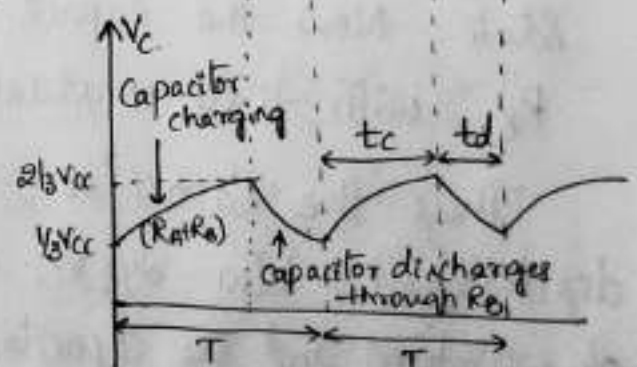 Vc
Capacitor
charging
tc
td
2/3 Vcc
1/3 Vcc
(RA+RB)
Capacitor discharges
through RB
T
T